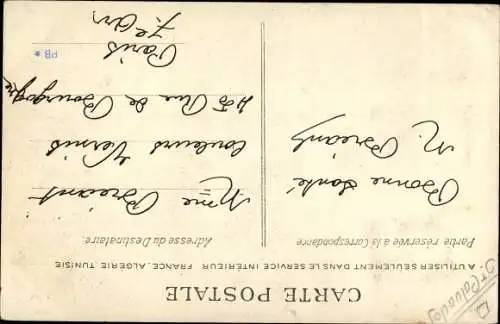 CARTE POSTALE
A UTILISER SEULEMENT DANS LE SERVICE INTÉRIEUR FRANCE, ALGÉRIE TUNISIE
Partie réservée à la Correspondance
Bonne Santé
M. Bréant
Adresse du Destinataire.
Mme Breant
Couleurs Vernis
Rue de Bourgogne
Paris
7e Arr.
PB